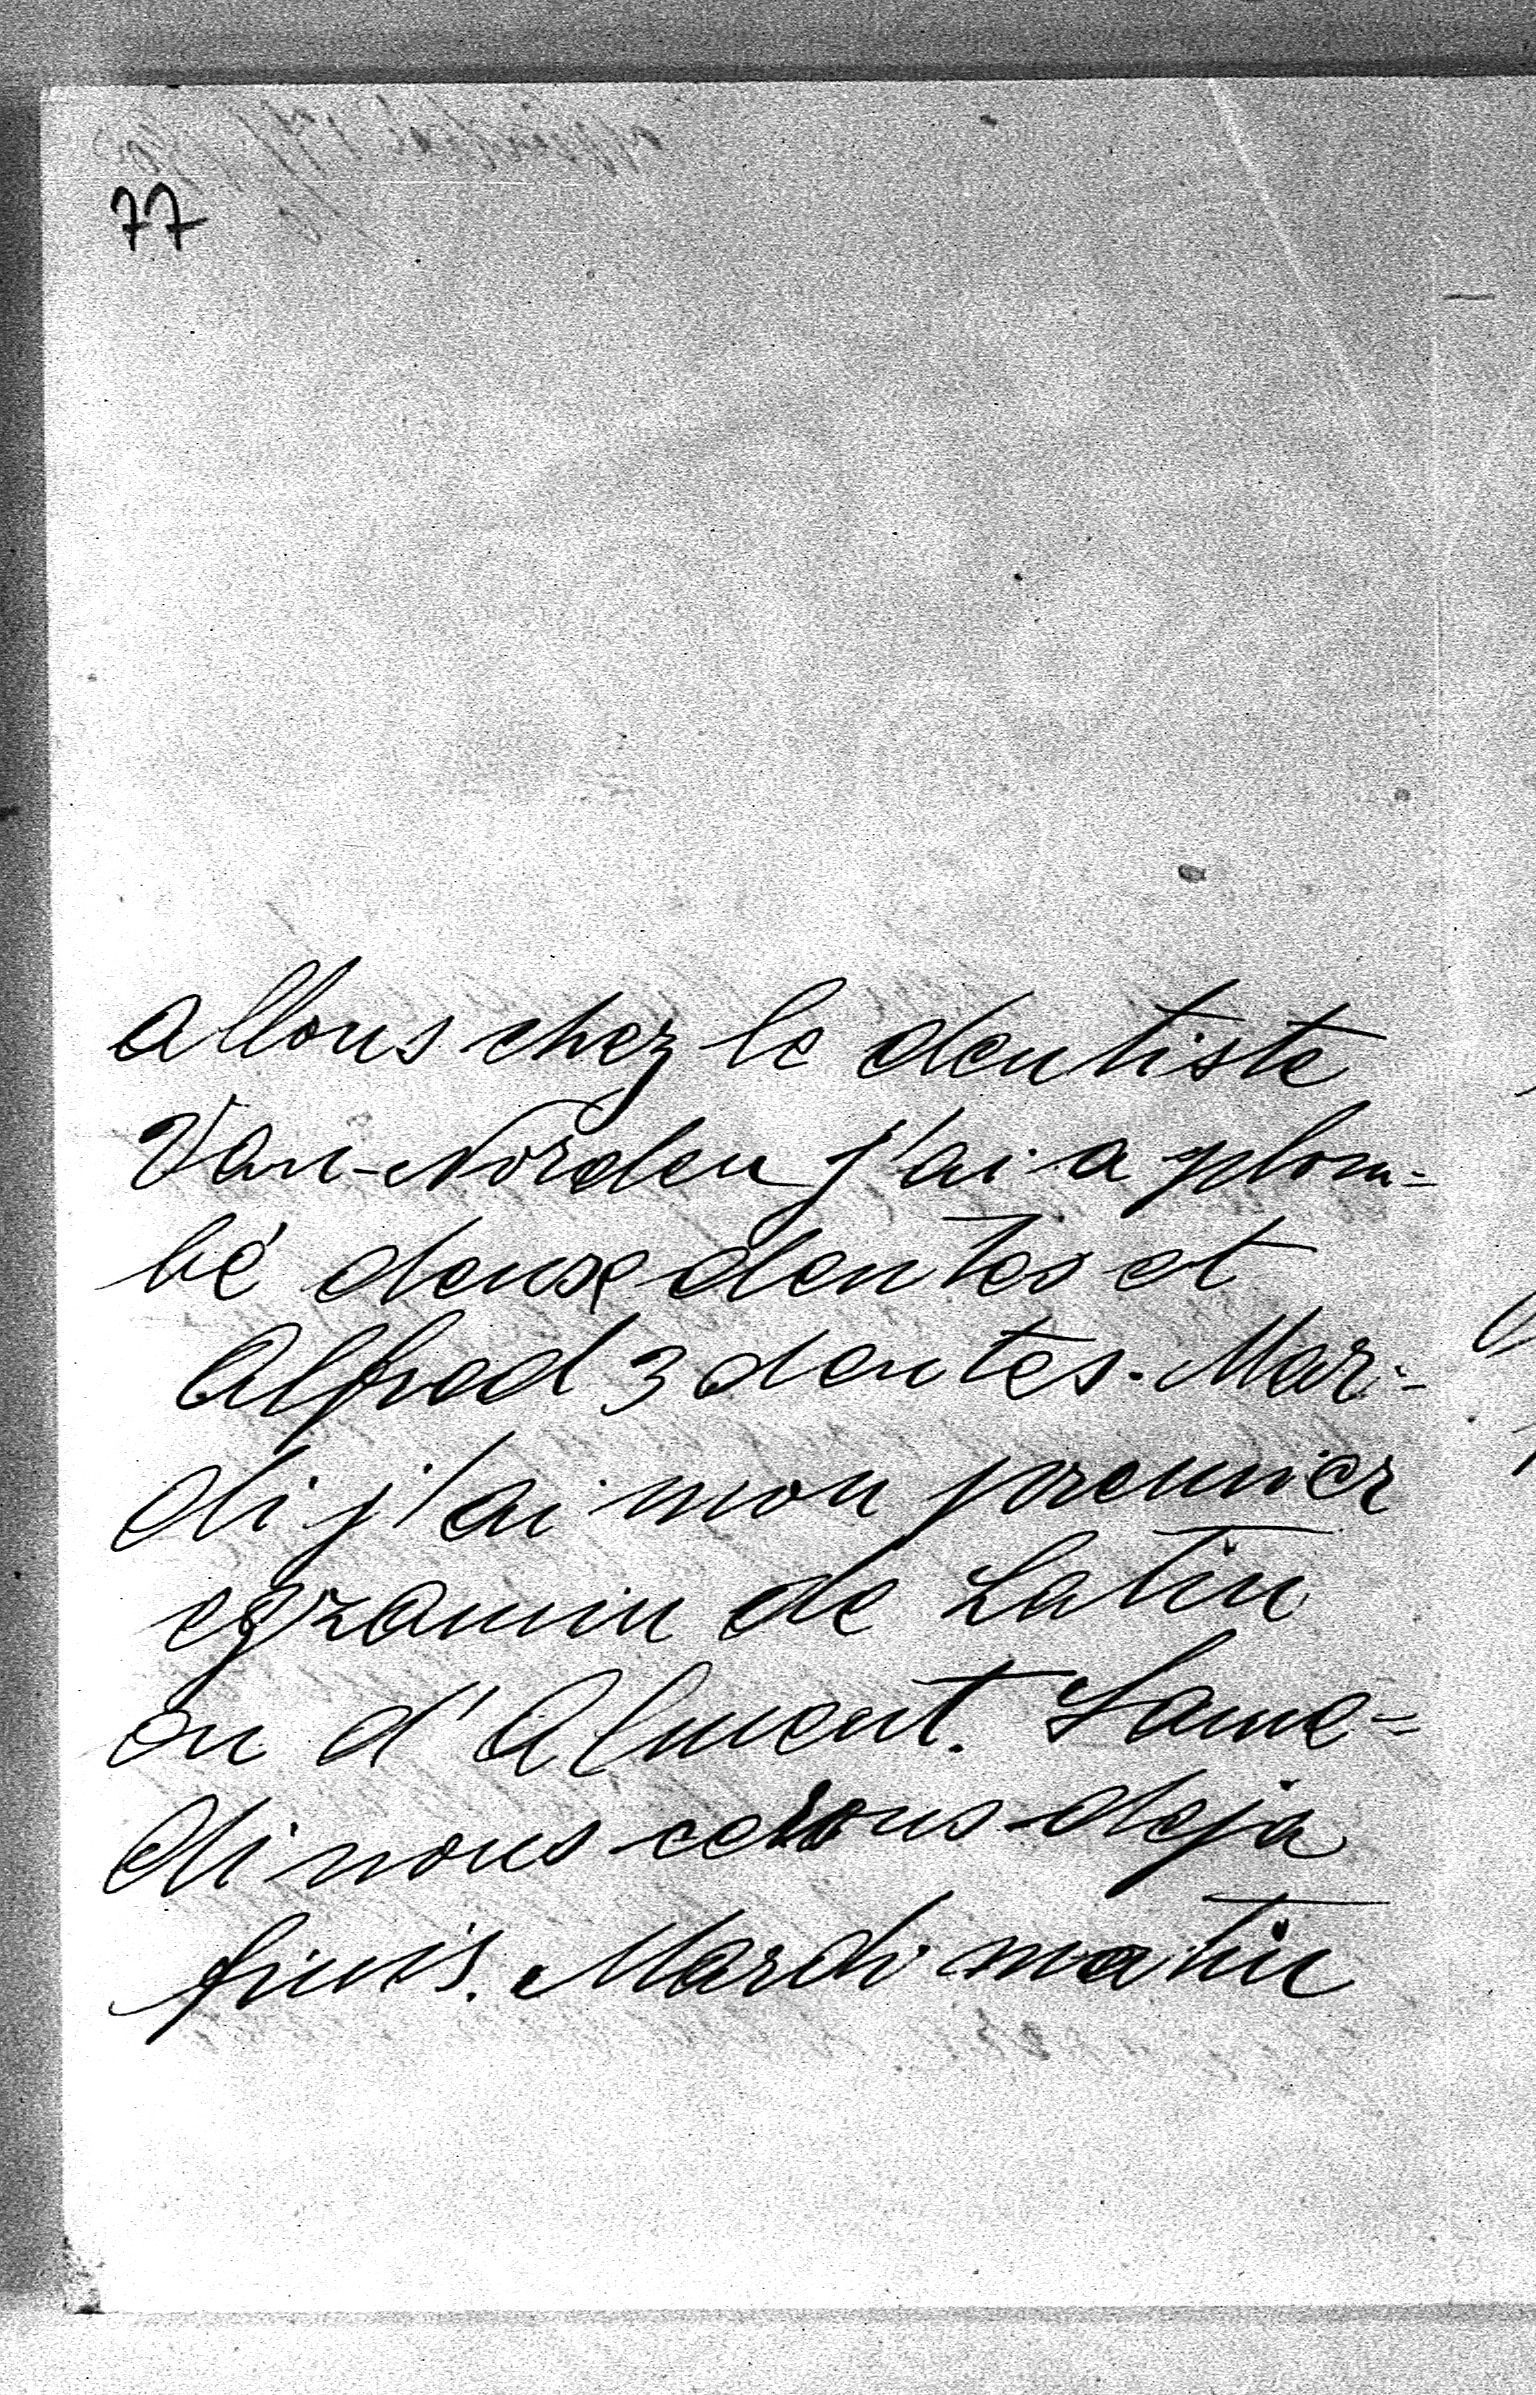 77
allons chez le dentiste
Van-Norden j'ai a plom=
bé deuxe dentes et
Alfred 3 dentes. Mar=
di j'ai mon premier
egzamin de Latin
ou d'Alment. Same=
di nous cerons deja
finis. Mardi matin